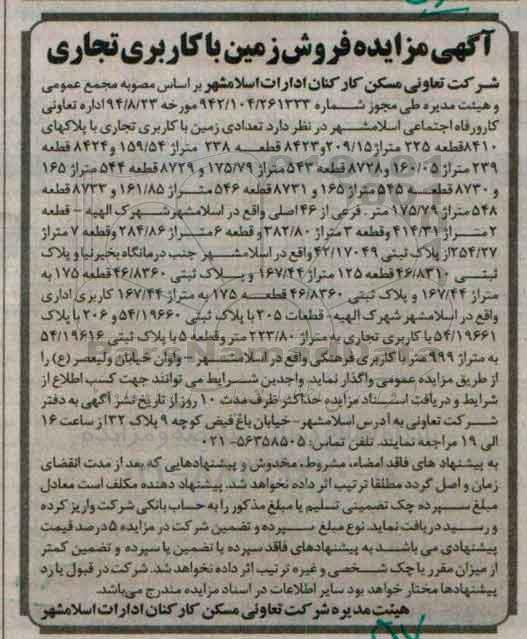 آگهی مزایده فروش زمین با کاربری تجاری
شرکت تعاونی مسکن کارکنان ادارات اسلامشهر بر اساس مصوبه مجمع عمومی
و هیئت مدیره طی مجوز شماره ۹۴۲/۱۰۴/۲۶۱۳۳۳ مورخه ۹۴/۸/۲۳ اداره تعاونی
کار و رفاه اجتماعی اسلامشهر در نظر دارد تعدادی زمین با کاربری تجاری با پلاکهای
۸۴۱۰ قطعه ۲۲۵ متراژ ۲۰۹/۱۵ و ۸۴۲۳ قطعه ۲۳۸ متراژ ۱۵۹/۵۴ و ۸۴۲۴ قطعه
۲۳۹ متراژ ۱۶۰/۰۵ و ۸۷۲۸ قطعه ۵۴۳ متراژ ۱۷۵/۷۹ و ۸۷۲۹ قطعه ۵۴۴ متراژ ۱۶۵
و ۸۷۳۰ قطعه ۵۴۵ متراژ ۱۶۵ و ۸۷۳۱ قطعه ۵۴۶ متراژ ۱۶۱/۸۵ و ۸۷۳۳ قطعه
۵۴۸ متراژ ۱۷۵/۷۹ متر. فرعی از ۴۶ اصلی واقع در اسلامشهر شهرک الهیه - قطعه
۲ متراژ ۴۱۴/۳۱ و قطعه ۳ متراژ ۲۸۲/۸۰ و قطعه ۶ متراژ ۲۸۴/۸۶ و قطعه ۷ متراژ
۲۵۴/۲۷ از پلاک ثبتی ۴۲/۱۷۰۴۹ واقع در اسلامشهر جنب درمانگاه بخیرنیا و پلاک
ثبتی ۴۶/۸۳۱۰ قطعه ۱۲۵ متراژ ۱۶۷/۴۴ و پلاک ثبتی ۴۶/۸۳۶۰ قطعه ۱۷۵ به
متراژ ۱۶۷/۴۴ و پلاک ثبتی ۴۶/۸۳۶۰ قطعه ۱۷۵ به متراژ ۱۶۷/۴۴ کاربری اداری
واقع در اسلامشهر شهرک الهیه- قطعات ۲۰۵ با پلاک ثبتی ۵۴/۱۹۶۶۰ و ۲۰۶ با پلاک
۵۴/۱۹۶۶۱ با کاربری تجاری به متراژ ۲۲۳/۸۰ متر و قطعه ۵ با پلاک ثبتی ۵۴/۱۹۶۱۶
به متراژ ۹۹۹ متر با کاربری فرهنگی واقع در اسلامشهر - واوان خیابان ولیعصر (ع) را
از طریق مزایده عمومی واگذار نماید. واجدین شرایط می توانند جهت کسب اطلاع از
شرایط و دریافت اسناد مزایده حداکثر ظرف مدت ۱۰ روز از تاریخ نشر آگهی به دفتر
شرکت تعاونی به آدرس اسلامشهر- خیابان باغ فیض کوچه ۹ پلاک ۳۲ از ساعت ۱۶
الی ۱۹ مراجعه نمایند. تلفن تماس: ۵۶۳۵۸۵۰۵-۰۲۱
به پیشنهاد های فاقد امضاء، مشروط، مخدوش و پیشنهادهایی که بعد از مدت انقضای
زمان واصل گردد مطلقا ترتیب اثر داده نخواهد شد. پیشنهاد دهنده مکلف است معادل
مبلغ سپرده چک تضمینی تسلیم یا مبلغ مذکور را به حساب بانکی شرکت واریز کرده
و رسید دریافت نماید. نوع مبلغ سپرده و تضمین شرکت در مزایده ۵ درصد قیمت
پیشنهادی می باشد به پیشنهادهای فاقد سپرده یا تضمین یا سپرده و تضمین کمتر
از میزان مقرر یا چک شخصی و غیره ترتیب اثر داده نخواهد شد. شرکت در قبول یا رد
پیشنهادها مختار خواهد بود سایر اطلاعات در اسناد مزایده مندرج می‌باشد.
هیئت مدیره شرکت تعاونی مسکن کارکنان ادارات اسلامشهر